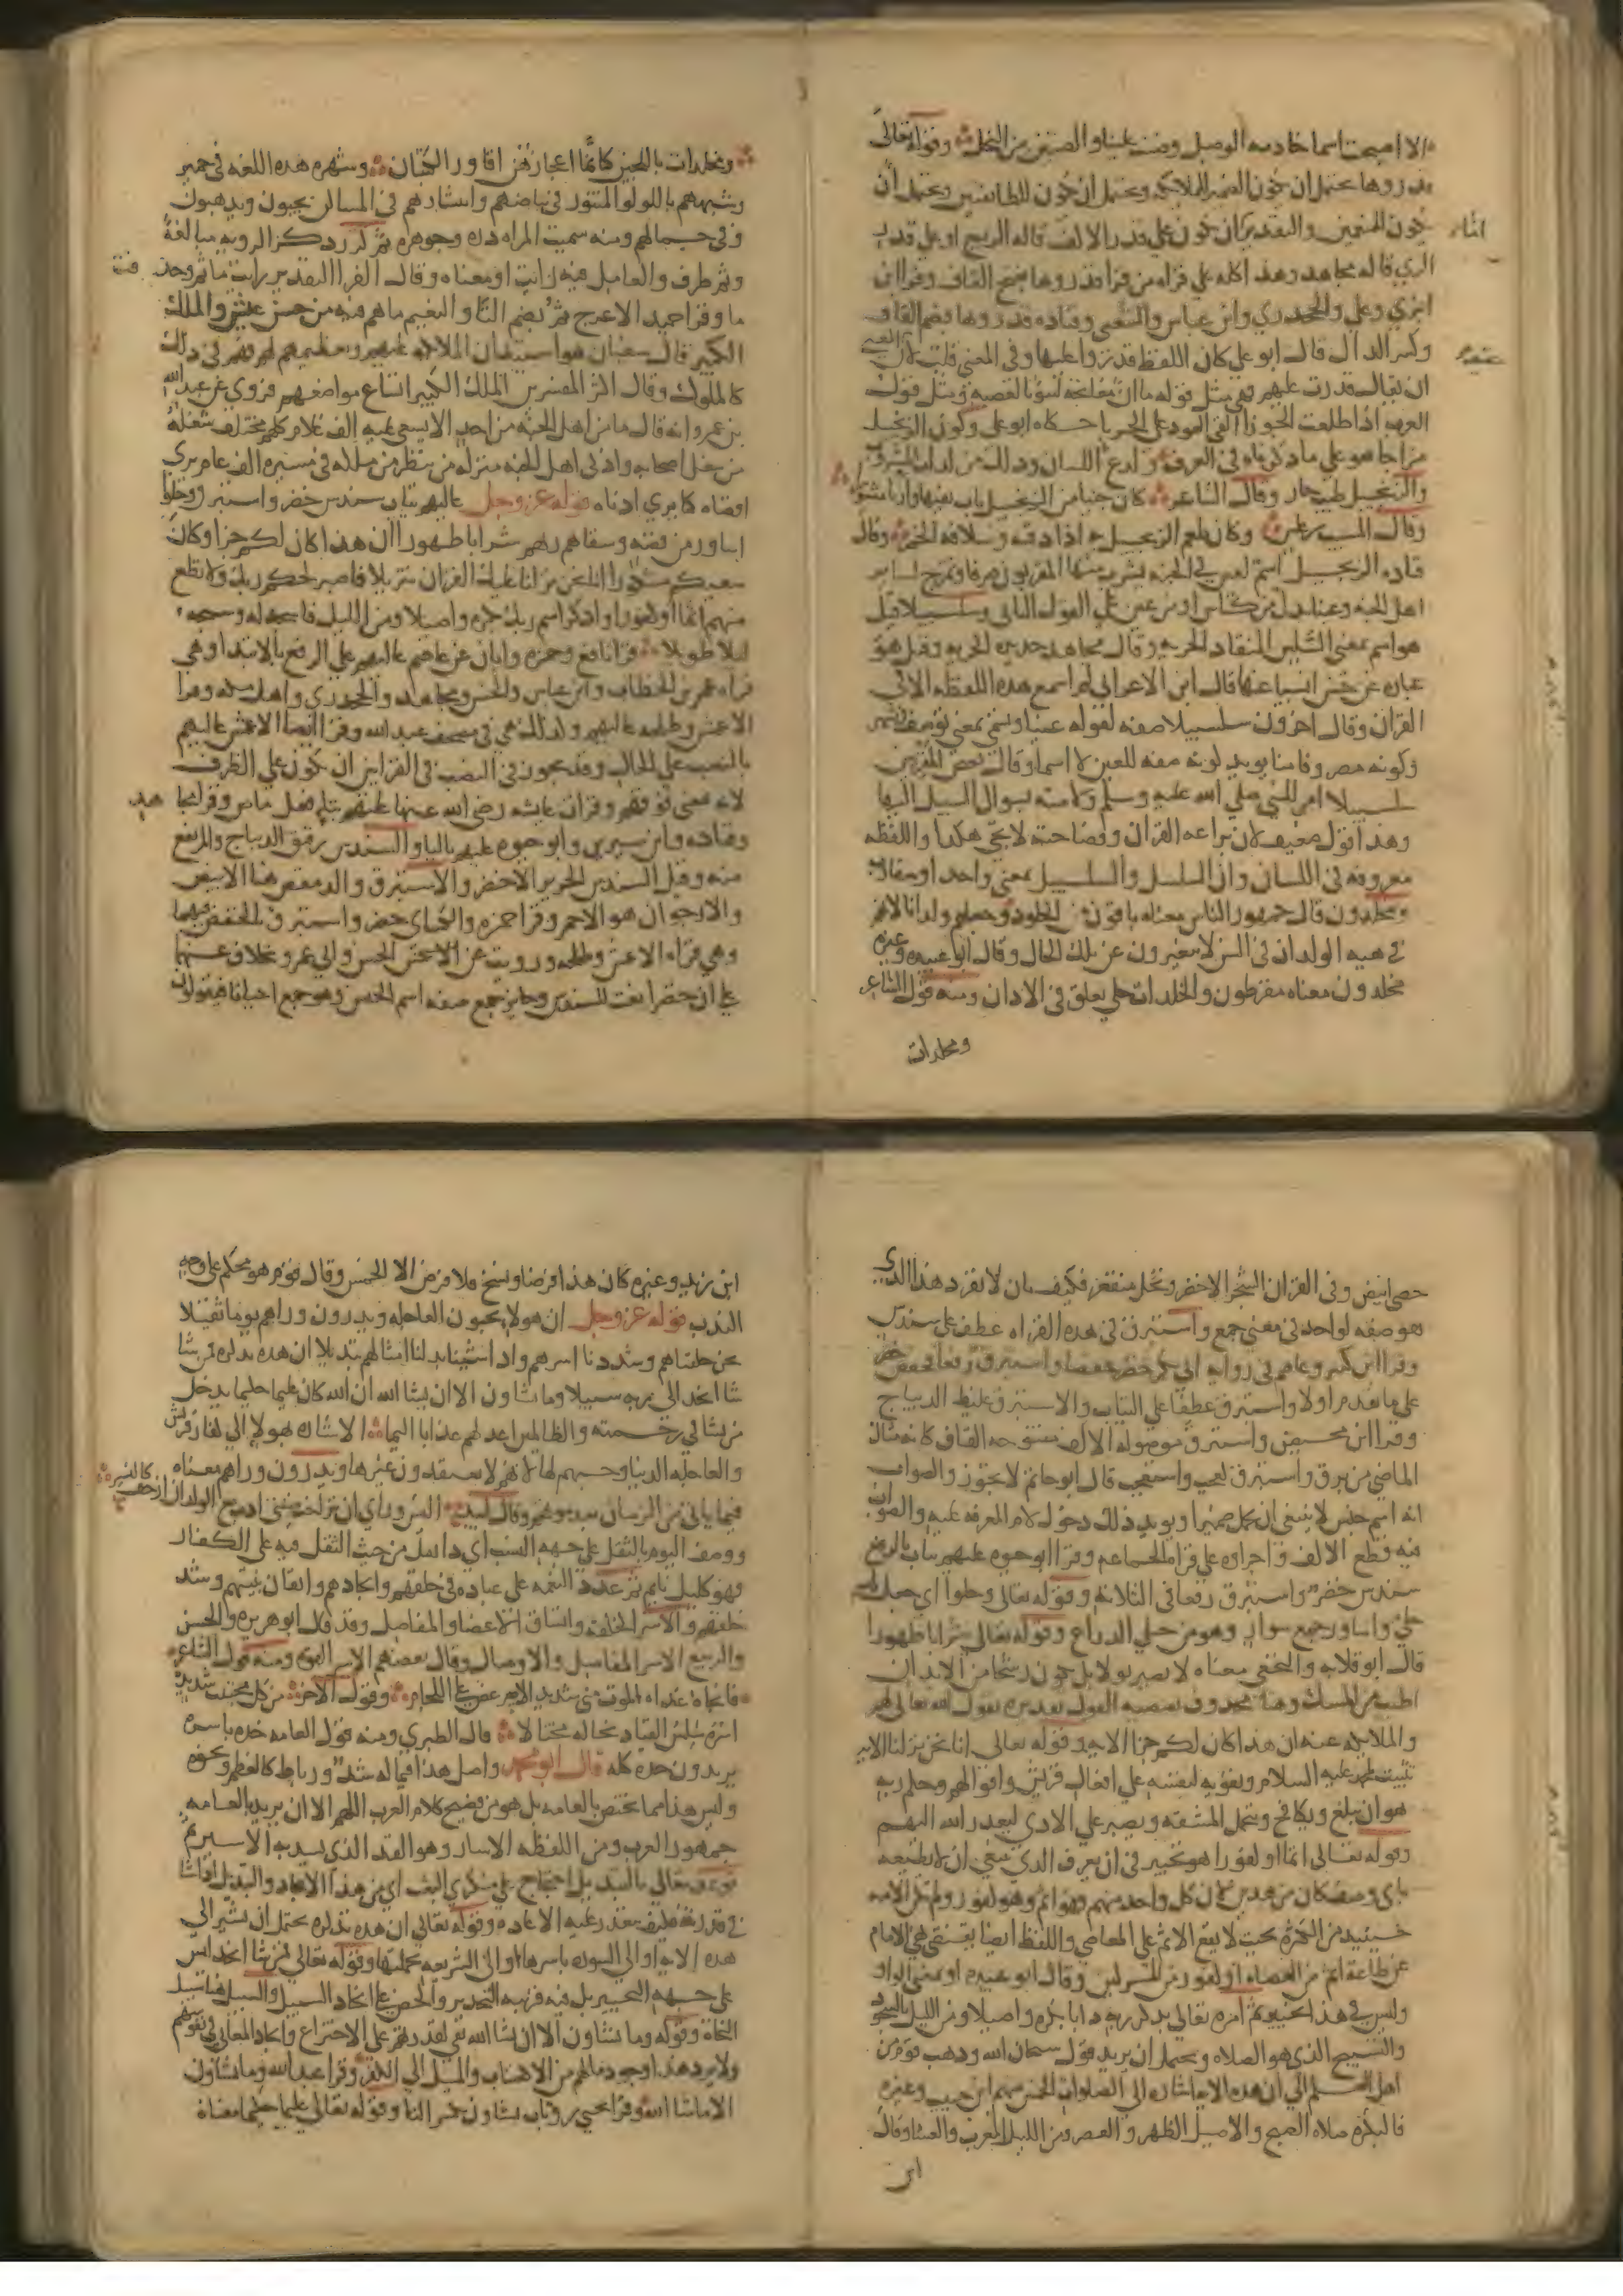 الا اصبحت اسما خادمه الوصل وضنت علينا والضنين من البخل وقوله تعالى
قدروها يحتمل ان يكون الضمير للملايكه ويحتمل ان يكون للطائفين ويحتمل ان
يكون للمنعمين والتقدير ان يكون على قدر الاكف قاله الربيع او على قدر
الري قاله مجاهد وهذا كله على قراه من قرا قدروها بفتح القاف وقرا ابن
ابزي وعلي والجحدري وابن عباس والشعبي وقتاده قدروها بضم القاف
وكسر الدال قال ابو علي كان اللفظ قدروا عليها وفي المعنى قلب لان
ان يقال قدرت عليهم فهي مثل قوله ما ان مفاتحه لتنوء بالعصبه ومثل قول
العرب اذا طلعت الجوزا القى العود على الحربا حكاه ابو علي وكون الزنجبيل
مزاجا هو على ما ذكرناه في العرف ولدع اللسان وذلك من لذات المشروب
والزنجبيل طيب حار وقال الشاعر كان جنيا من الزنجبيل بات بفيها واريا مشورا
وقال المسيب بن علس وكان طعم الزنجبيل به اذا ذقته وسلافه الخمر وقال
قتاده الزنجبيل اسم لعين في الجنه يشرب منها المقربون صرفا وتمزج لساير
اهل الجنه وعينا بدل من كاس او من عين على القول الثاني وسلسبيلا قيل
هو اسم بمعنى السلس المنقاد الجريه وقال مجاهد حديده الجريه وقيل هو
عباره عن حسن انسياغها قال ابن الاعرابي لم اسمع هذه اللفظه الا في
القران وقال اخرون سلسبيلا صفه لقوله عينا وتسمى بمعنى توصف وتشهر
وكونه مصروفا مما يويد كونه صفه للعين لا اسما وقال بعض المقرئين
سلسبيلا امر للنبي صلى الله عليه وسلم وكامته بسوال السبيل اليها
وهذا قول ضعيف لان براعه القران وفصاحته لا يجي هكذا واللفظه
معروفه في اللسان وان السلسل والسلسبيل بمعنى واحد او متقارب
ومخلدون قال جمهور الناس معناه باقون من الخلود وجعلهم ولدانا لانهم
في هيه الولدان في السن لا يتغيرون عن تلك الحال وقال ابو عبيده وغيره
مخلدون معناه مقرطون والخلدات حلي يعلق في الاذان ومنه قول الشاعر
ومخلدات
ومخلدات باللجين كانما اعجازهن اقاوز الكثبان وشهره هذه اللغه في حمير
وشبههم باللولو المنثور في بياضهم وانتشارهم في المساكن يجيون ويذهبون
وفي جمالهم ومنه سميت المراه دره وجوهره ثم كرر ذكر الرويه مبالغه
وثم ظرف والعامل فيه رايت او معناه وقال الفرا التقدير رايت ما ثم وحذفت
ما وقرا حميد الاعرج ثم بضم الثا والنعيم ما هم فيه من حسن عيش والملك
الكبير قال سفيان هو استيذان الملايكه عليهم وتسليمهم عليهم فهم في ذلك
كالملوك وقال اكثر المفسرين الملك الكبير اتساع مواضعهم فروي عن عبد الله
بن عمرو انه قال ما من اهل الجنه من احد الا يسعى عليه الف غلام كلهم مختلف شغله
من شغل اصحابه وادنى اهل الجنه منزله من ينظر من ملكه في مسيره الف عام يرى
اقصاه كما يرى ادناه قوله عز وجل عاليهم ثياب سندس خضر واستبرق وحلوا
اساور من فضه وسقاهم ربهم شرابا طهورا ان هذا كان لكم جزا وكان
سعيكم مشكورا انا نحن نزلنا عليك القران تنزيلا فاصبر لحكم ربك ولا تطع
منهم اثما او كفورا واذكر اسم ربك بكره واصيلا ومن الليل فاسجد له وسبحه
ليلا طويلا قرا نافع وحمزه وابان عن عاصم عاليهم على الرفع بالابتدا وهي
قراه عمر بن الخطاب وابن عباس والحسن ومجاهد والجحدري واهل مكه وقرا
الاعمش وطلحه عاليهم وكذلك هي في مصحف عبد الله وقرا ايضا الاعمش عاليهم
بالنصب على الحال وقد يجوز في النصب في القراتين ان يكون على الظرف
لانه بمعنى فوقهم وقرات عايشه رضي الله عنها عليهم بتا فعل ماض وقرا مجاهد
وقتاده وابن سيرين وابو حيوه عليهم باليا والسندس رقيق الديباج والمرتفع
منه وقيل السندس الحرير الاخضر والاستبرق والدمقس هنا الابيض
والارجوان هو الاحمر وقرا حمزه والكساي خضر واستبرق بالخفض فيهما
وهي قراه الاعمش وطلحه ورويت عن الحسن وابي عمرو بخلاف عنهما
على ان خضر نعت للسندس وجايز جمع صفه اسم الجنس وهو جمع احيانا فيقولون
حصى ابيض وفي القران الشجر الاخضر ونخل منقعر فكيف بان لا يفرد هذا الذي
هو صفه لواحد في معنى جمع واستبرق في هذه القراه عطف على سندس
وقرا ابن كثير وعاصم في روايه ابي بكر خضر خفضا واستبرق رفعا فخفض خضر
على ما تقدم اولا واستبرق عطفا على الثياب والاستبرق غليظ الديباج
وقرا ابن محيصن واستبرق موصوله الالف مفتوحه القاف كانه مثال
الماضي من برق واستبرق كعجب واستعجب قال ابو حاتم لا يجوز والصواب
انه اسم جنس لا ينبغي ان يحمل ضميرا ويويد ذلك دخول لام المعرفه عليه والصواب
فيه قطع الالف واجراوه على قراه الجماعه وقرا ابو حيوه عليهم ثياب بالرفع
سندس خضر واستبرق رفعا في الثلاثه وقوله تعالى وحلوا اي جعل لهم
حلي واساور جمع سوار وهو من حلي الذراع وقوله تعالى شرابا طهورا
قال ابو قلابه والنخعي معناه لا يصير بولا بل يكون رشحا من الابدان
اطيب من المسك وهنا محذوف يقتضيه القول تقديره يقول الله تعالى لهم
والملايكه عنه ان هذا كان لكم جزا الايه وقوله تعالى انا نحن نزلنا الايه
تثبيت لمحمد عليه السلام وتقويه لنفسه على افعال قريش واقوالهم وحكم ربه
هو ان يبلغ ويكافح ويتحمل المشقه ويصبر على الاذى ليعذر الله اليهم
وقوله تعالى اثما او كفورا هو تخيير في ان يعرف الذي ينبغي ان لا يطيعه
باي وصف كان من هذين لان كل واحد منهم فهو اثم وهو كفور ولم تكن الامه
حينيذ من الكثره بحيث لا يقع الاثم على المعاصي واللفظ ايضا يقتضي نهي الامام
عن طاعه اثم من العصاه او كفور من المشركين وقال ابو عبيده او بمعنى الواو
وليس في هذا تخيير ثم امره تعالى بذكر ربه دابا بكره واصيلا ومن الليل بالسجود
والتسبيح الذي هو الصلاه ويحتمل ان يريد قول سبحان الله وذهب قوم من
اهل العلم الى ان هذه الايه اشاره الى الصلوات الخمس منهم ابن حبيب وغيره
فالبكره صلاه الصبح والاصيل الظهر والعصر ومن الليل المغرب والعشا وقال
ابن
ابن زيد وغيره كان هذا فرضا ونسخ فلا فرض الا الخمس وقال قوم هو محكم على وجه
الندب قوله عز وجل ان هولا يحبون العاجله ويذرون وراهم يوما ثقيلا
نحن خلقناهم وشددنا اسرهم واذا شينا بدلنا امثالهم تبديلا ان هذه تذكره فمن شا
شا اتخذ الى ربه سبيلا وما تشاون الا ان يشا الله ان الله كان عليما حكيما يدخل
من يشا في رحمته والظالمين اعد لهم عذابا اليما الاشاره بهولا الى كفار قريش
والعاجله الدنيا وحبهم لها لانهم لا يعتقدون غيرها ويذرون وراهم معناه
فيما ياتي من الزمان بعد موتهم وقال لبيد اليس وراي ان تراخت منيتي ادب مع الولدان ازحف كالنسر
ووصف اليوم بالثقل على جهه النسب اي ذا ثقل من حيث الثقل فيه على الكفار
فهو كليل نايم ثم عدد النعمه على عباده في خلقهم وايجادهم واتقان بنيتهم وشد
خلقهم والاسر الخلقه واتساق الاعضا والمفاصل وقد قال ابو هريره والحسن
والربيع الاسر المفاصل والاوصال وقال بعضهم الاسر القوه ومنه قول الشاعر
فانجاه غداه الموت مني شديد الاسر عض على اللجام وقول الاخر من كل مجتنب شديد
اسره سلس القياد تخاله مختالا قال الطبري ومنه قول العامه خذه باسره
يريدون خذه كله قال ابو محمد واصل هذا فيما له شد ورباط كالعظم ونحوه
وليس هذا مما يختص بالعامه بل هو من فصيح كلام العرب اللهم الا ان يريد بالعامه
جمهور العرب ومن اللفظه الاسار وهو القد الذي يشد به الاسير ثم
توعد تعالى بالتبديل احتجاج على منكري البعث اي من هذا الايجاد والتبديل اذا شا
في قدرته فكيف تتعذر عليه الاعاده وقوله تعالى ان هذه تذكره يحتمل ان يشير الى
هذه الايه او الى السوره باسرها او الى الشريعه بجملتها وقوله تعالى فمن شا اتخذ ليس
على جهه التخيير بل فيه قرينه التحذير والحض على اتخاذ السبيل والسبيل هنا سبيل
النجاه وقوله وما تشاون الا ان يشا الله نفي لقدرتهم على الاختراع وايجاد المعاني في نفوسهم
ولا يرد هذا وجود ما لهم من الاكتساب والميل الى الكفر وقرا عبد الله وما تشاون
الا ما شا الله وقرا يحيى بن وثاب تشاون بكسر التا وقوله تعالى عليما حكيما معناه